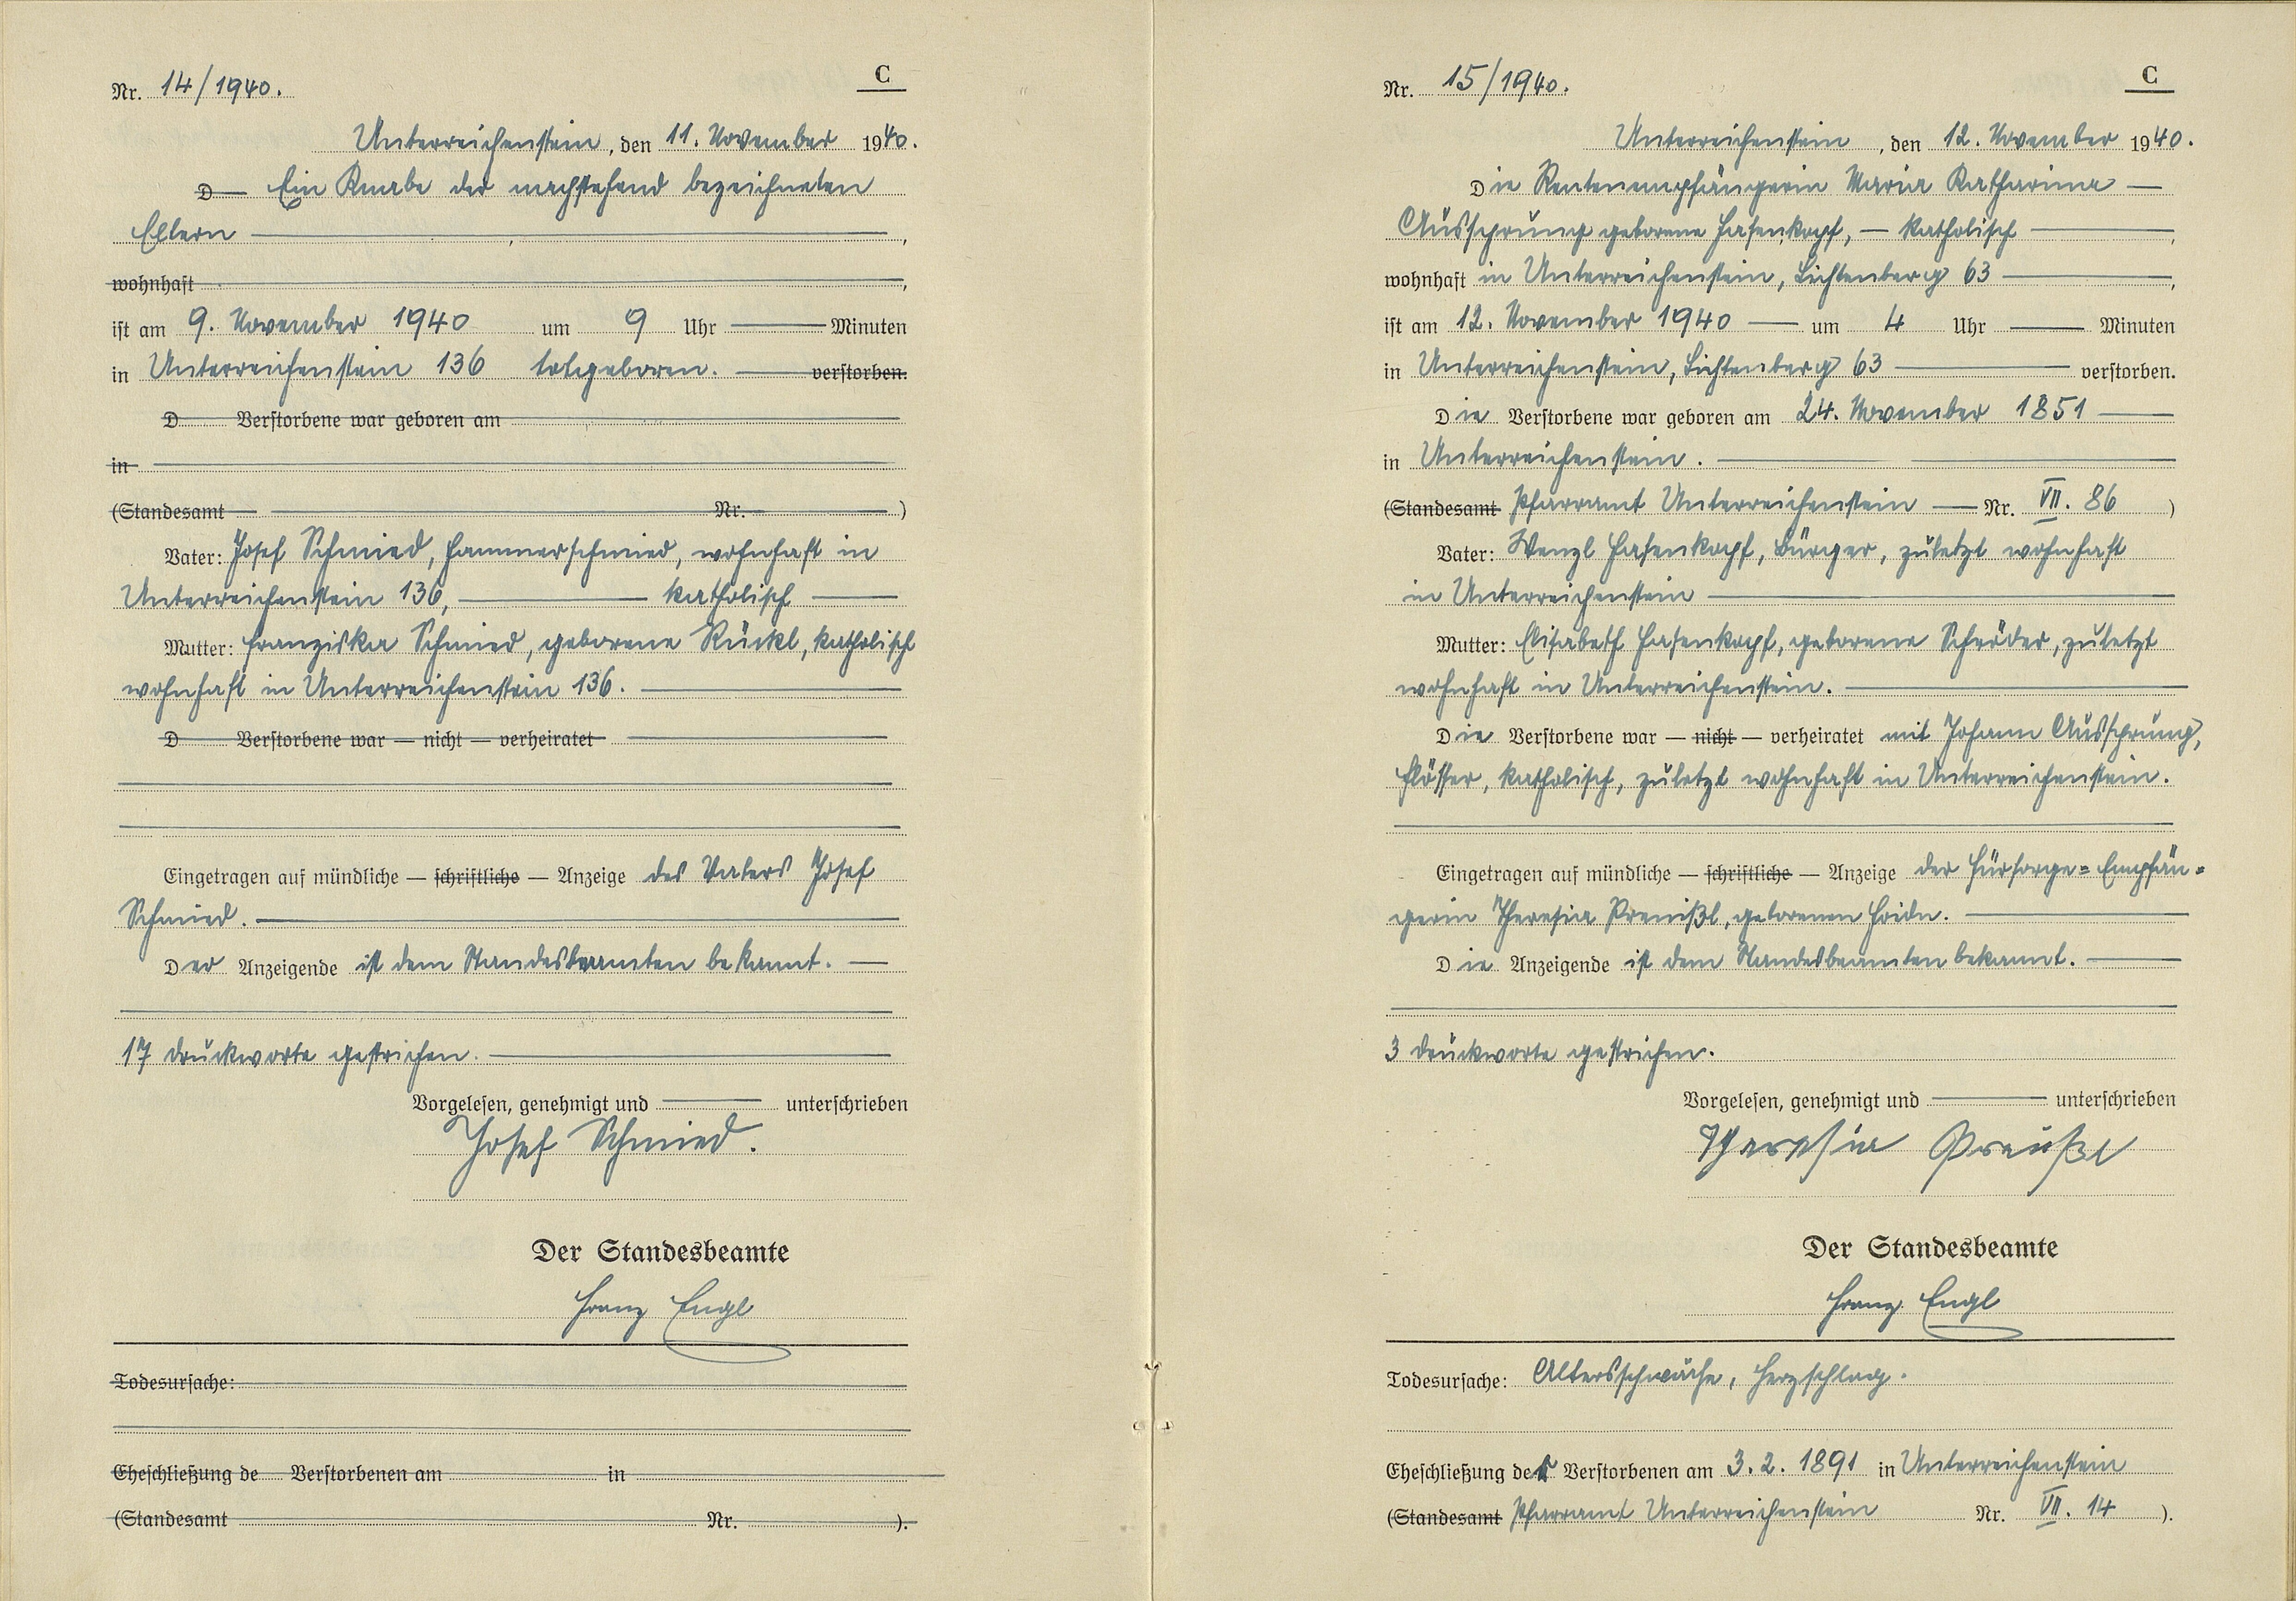 Nr. 14/1940.
C
Unterreichenstein, den 11. November 1940.
D— Ein Knabe der nachstehend bezeichneten
Eltern —,
wohnhaft —,
ist am 9. November 1940 um 9 Uhr — Minuten
in Unterreichenstein 136 totgeboren. — verstorben.
D Verstorbene war geboren am
in
(Standesamt — Nr. — )
Vater: Josef Schmied, Hammerschmied, wohnhaft in
Unterreichenstein 136, — katholisch —
Mutter: Franziska Schmied, geborene Rückl, katholisch
wohnhaft in Unterreichenstein 136. —
D Verstorbene war — nicht — verheiratet
Eingetragen auf mündliche — schriftliche — Anzeige des Vaters Josef
Schmied. —
Der Anzeigende ist dem Standesbeamten bekannt. —
17 Druckworte gestrichen. —
Vorgelesen, genehmigt und — unterschrieben
Josef Schmied.
Der Standesbeamte
Franz Engl
Todesursache:
Eheschließung de Verstorbenen am in
(Standesamt Nr. ).
Nr. 15/1940.
C
Unterreichenstein, den 12. November 1940.
Die Rentenempfängerin Maria Katharina —
Aussprung geborene Hasenkopf, — katholisch —,
wohnhaft in Unterreichenstein, Lichtenberg 63 —,
ist am 12. November 1940 — um 4 Uhr — Minuten
in Unterreichenstein, Lichtenberg 63 — verstorben.
Die Verstorbene war geboren am 24. November 1851 —
in Unterreichenstein. —
(Standesamt Pfarramt Unterreichenstein — Nr. VII. 86 )
Vater: Wenzl Hasenkopf, Bürger, zuletzt wohnhaft
in Unterreichenstein —
Mutter: Elisabeth Hasenkopf, geborene Schröder, zuletzt
wohnhaft in Unterreichenstein. —
Die Verstorbene war — nicht — verheiratet mit Johann Aussprung,
Flösser, katholisch, zuletzt wohnhaft in Unterreichenstein.
Eingetragen auf mündliche — schriftliche — Anzeige der Fürsorge=Empfän=
gerin Theresia, geborenen —
Die Anzeigende ist dem Standesbeamten bekannt. —
3 Druckworte gestrichen.
Vorgelesen, genehmigt und — unterschrieben
Theresia
Der Standesbeamte
Franz Engl
Todesursache: Altersschwäche, Herzschlag.
Eheschließung der Verstorbenen am 3.2.1891 in Unterreichenstein
(Standesamt Pfarramt Unterreichenstein Nr. VII. 14 ).